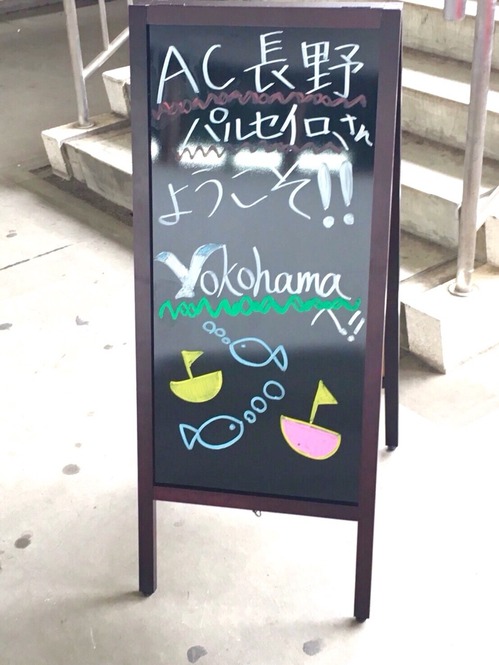 AC長野
パルセイロさん
ようこそ!!
Yokohama
へ!!